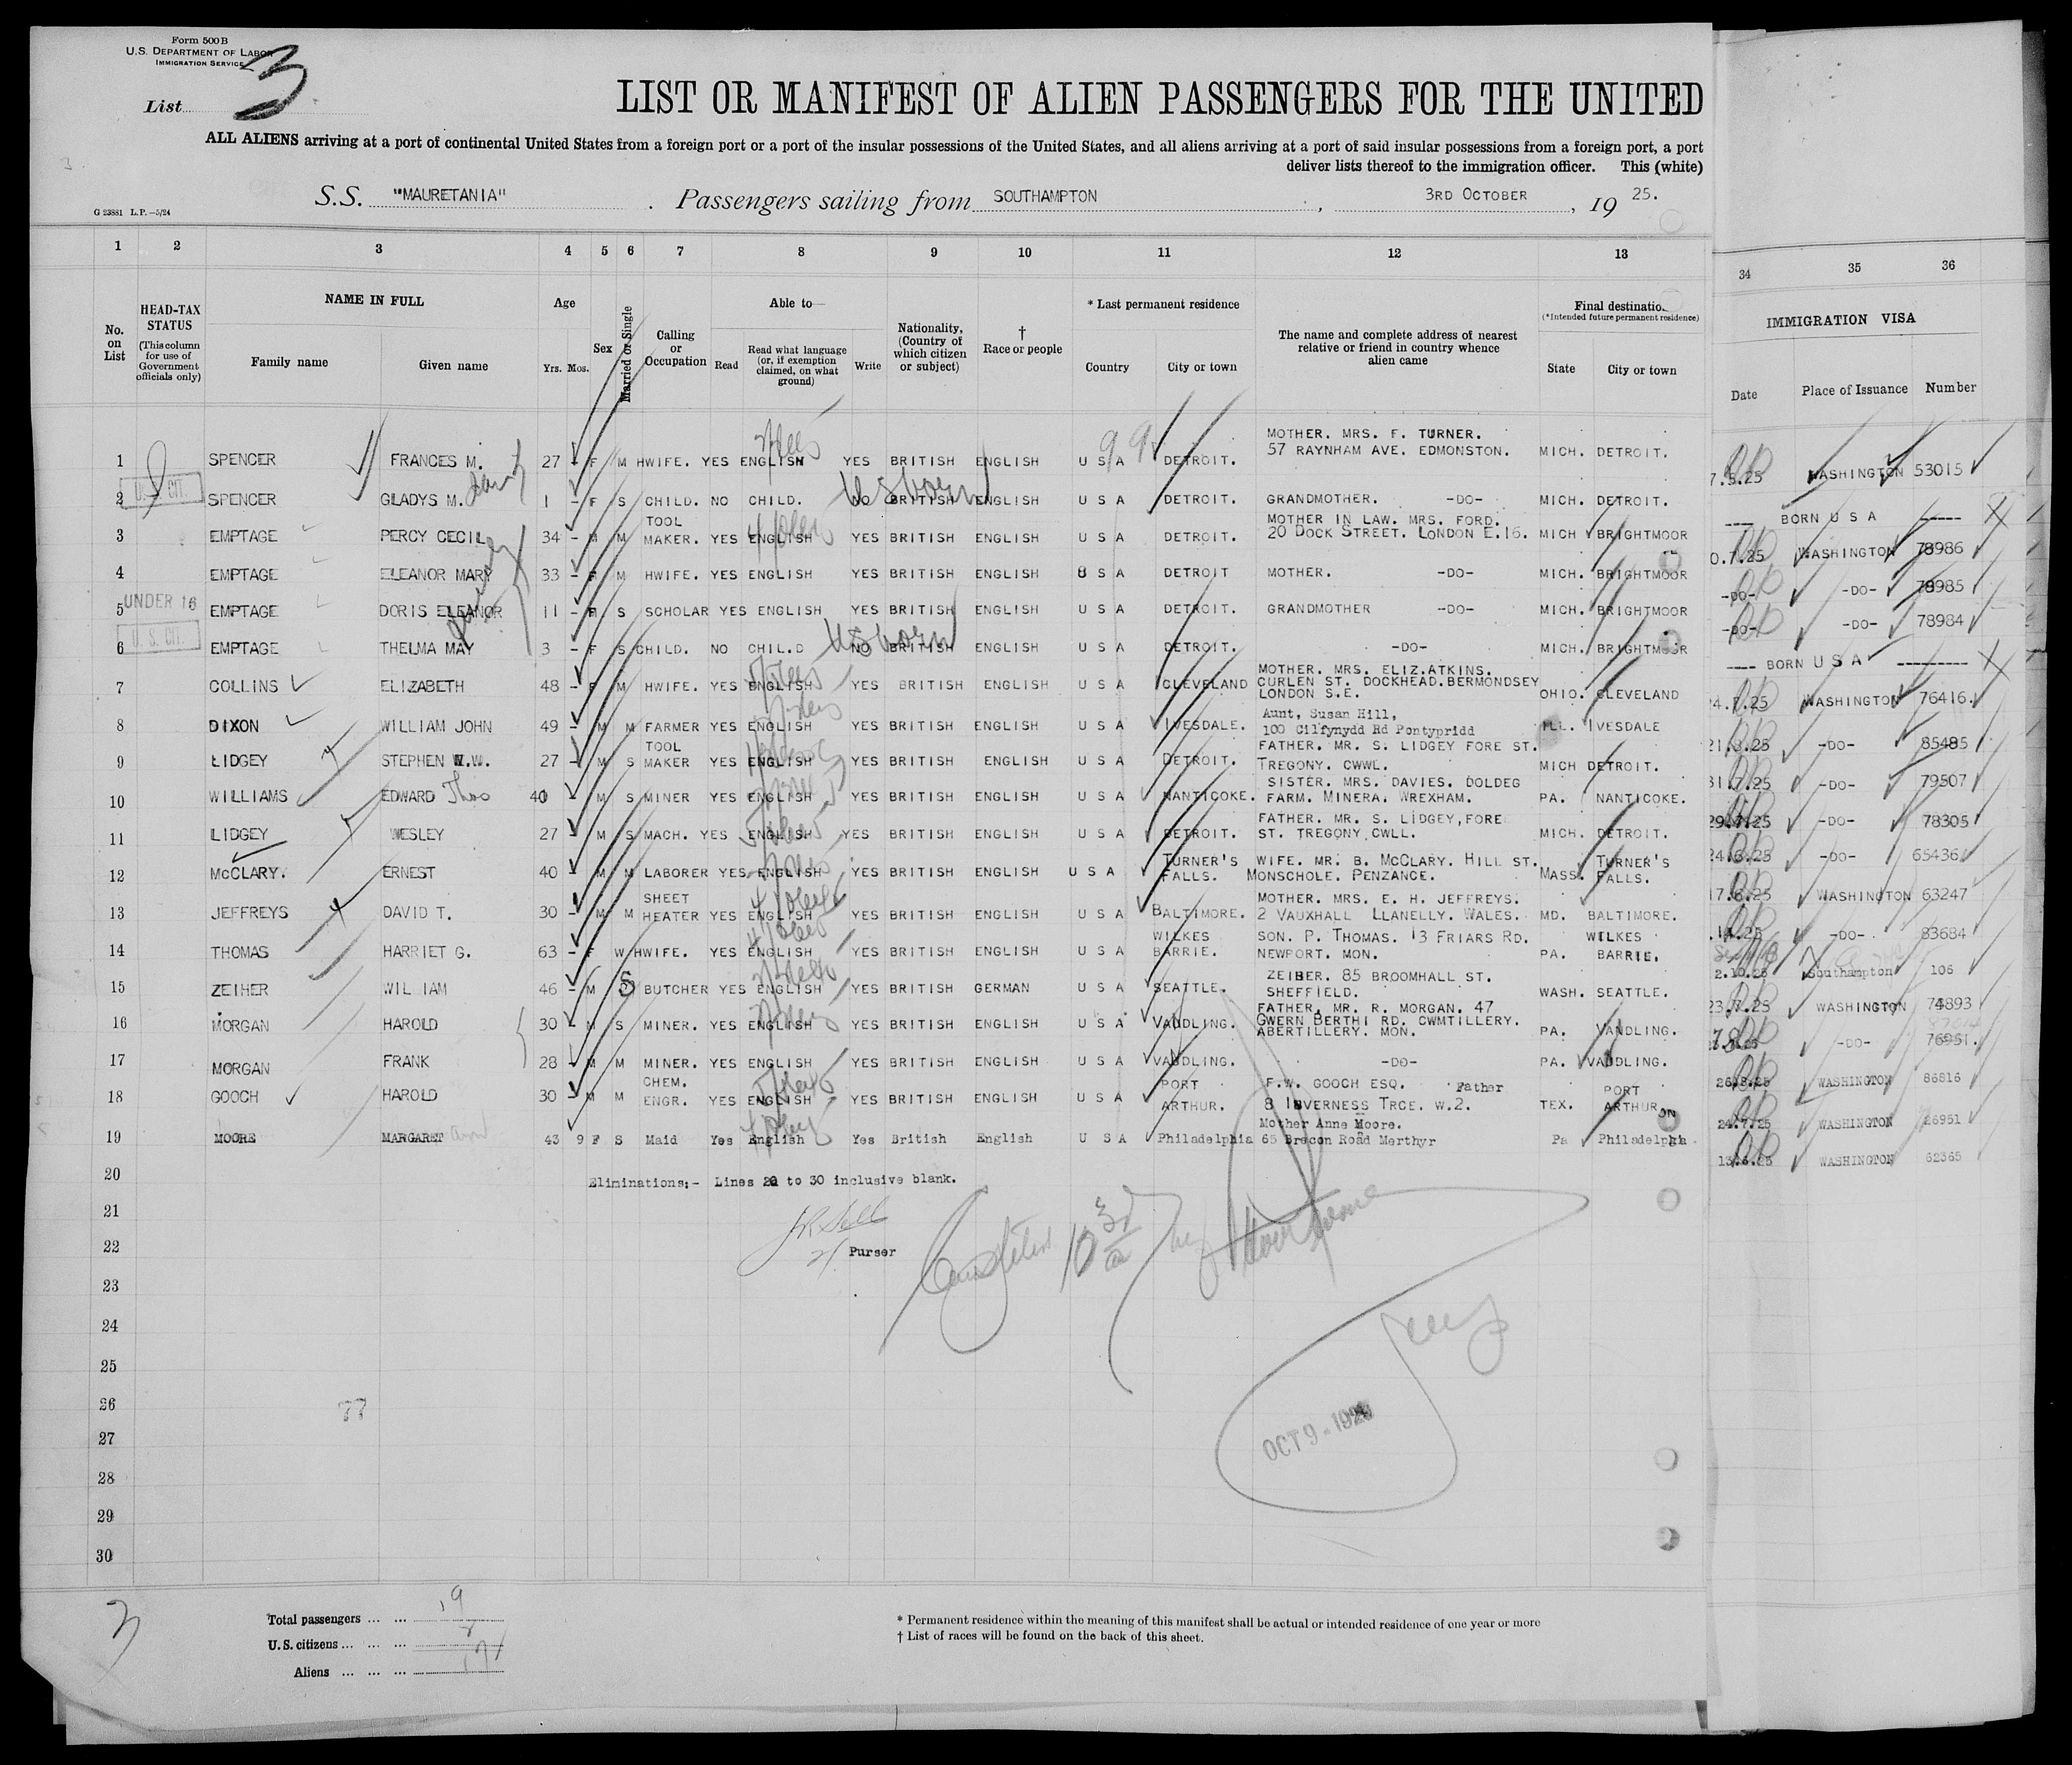 Form 500B
U.S. DEPARTMENT OF LABOR
IMMIGRATION SERVICE
List 3
LIST OR MANIFEST OF ALIEN PASSENGERS FOR THE UNITED
ALL ALIENS arriving at a port of continental United States from a foreign port or a port of the insular possessions of the United States, and all aliens arriving at a port of said insular possessions from a foreign port, a port
deliver lists thereof to the immigration officer. This (white)
S.S. "MAURETANIA" . Passengers sailing from SOUTHAMPTON , 3RD OCTOBER , 19 25.
G 23881 L.P.—5/24
1 2 3 4 5 6 7 8 9 10 11 12 13 34 35 36
No. on List
HEAD-TAX STATUS (This column for use of Government officials only)
NAME IN FULL
Family name Given name
Age Yrs. Mos.
Sex
Married or Single
Calling or Occupation
Able to—
Read Read what language (or, if exemption claimed, on what ground) Write
Nationality, (Country of which citizen or subject)
† Race or people
* Last permanent residence
Country City or town
The name and complete address of nearest relative or friend in country whence alien came
Final destination
(*Intended future permanent residence)
State City or town
IMMIGRATION VISA
Date Place of Issuance Number
1 SPENCER FRANCES M. 27 - F M HWIFE. YES ENGLISH YES BRITISH ENGLISH U S A DETROIT. MOTHER. MRS. F. TURNER. 57 RAYNHAM AVE. EDMONSTON. MICH. DETROIT. 7.5.25 WASHINGTON 53015
U.S. CIT.
2 SPENCER GLADYS M. 1 - F S CHILD. NO CHILD. NO BRITISH ENGLISH U S A DETROIT. GRANDMOTHER. -DO- MICH. DETROIT. ---- BORN U S A -----
US born
3 EMPTAGE PERCY CECIL 34 - M M TOOL MAKER. YES ENGLISH YES BRITISH ENGLISH U S A DETROIT. MOTHER IN LAW. MRS. FORD. 20 DOCK STREET. LONDON E.16. MICH BRIGHTMOOR 0.7.25 WASHINGTON 78986
4 EMPTAGE ELEANOR MARY 33 - F M HWIFE. YES ENGLISH YES BRITISH ENGLISH U S A DETROIT MOTHER. -DO- MICH. BRIGHTMOOR -DO- -DO- 78985
UNDER 16
5 EMPTAGE DORIS ELEANOR 11 - F S SCHOLAR YES ENGLISH YES BRITISH ENGLISH U S A DETROIT. GRANDMOTHER -DO- MICH. BRIGHTMOOR -DO- -DO- 78984
U. S. CIT.
6 EMPTAGE THELMA MAY 3 - F S CHILD. NO CHIL.D NO BRITISH ENGLISH U S A DETROIT. -DO- MICH. BRIGHTMOOR ---- BORN U S A ----------
US born
7 COLLINS ELIZABETH 48 - F M HWIFE. YES ENGLISH YES BRITISH ENGLISH U S A CLEVELAND MOTHER. MRS. ELIZ.ATKINS. CURLEN ST. DOCKHEAD.BERMONDSEY LONDON S.E. OHIO. CLEVELAND 4.7.25 WASHINGTON 76416.
8 DIXON WILLIAM JOHN 49 - M M FARMER YES ENGLISH YES BRITISH ENGLISH U S A IVESDALE. Aunt, Susan Hill, 100 Cilfynydd Rd Pontypridd ILL. IVESDALE 21.8.25 -DO- 85485
9 LIDGEY STEPHEN W.W. 27 - M S TOOL MAKER YES ENGLISH YES BRITISH ENGLISH U S A DETROIT. FATHER. MR. S. LIDGEY FORE ST. TREGONY. CWWL. MICH DETROIT. 31.7.25 -DO- 79507
10 WILLIAMS EDWARD Thos 40 - M S MINER YES ENGLISH YES BRITISH ENGLISH U S A NANTICOKE. SISTER. MRS. DAVIES. DOLDEG FARM. MINERA. WREXHAM. PA. NANTICOKE. 29.7.25 -DO- 78305
11 LIDGEY WESLEY 27 - M S MACH. YES ENGLISH YES BRITISH ENGLISH U S A DETROIT. FATHER. MR. S. LIDGEY,FORE ST. TREGONY.CWLL. MICH. DETROIT. 24.6.25 -DO- 65436
12 McCLARY. ERNEST 40 - M M LABORER YES ENGLISH YES BRITISH ENGLISH U S A TURNER'S FALLS. WIFE. MR. B. McCLARY. HILL ST. MONSCHOLE. PENZANCE. MASS. TURNER'S FALLS. 17.6.25 WASHINGTON 63247
13 JEFFREYS DAVID T. 30 - M M SHEET HEATER YES ENGLISH YES BRITISH ENGLISH U S A BALTIMORE. MOTHER. MRS. E. H. JEFFREYS. 2 VAUXHALL LLANELLY. WALES. MD. BALTIMORE. -DO- 83684
14 THOMAS HARRIET G. 63 - F W HWIFE. YES ENGLISH YES BRITISH ENGLISH U S A WILKES BARRIE. SON. P. THOMAS. 13 FRIARS RD. NEWPORT. MON. PA. WILKES BARRIE. 2.10.25 Southampton 106
15 ZEIHER WILLIAM 46 - M S BUTCHER YES ENGLISH YES BRITISH GERMAN U S A SEATTLE. ZEIBER. 85 BROOMHALL ST. SHEFFIELD. WASH. SEATTLE. 23.7.25 WASHINGTON 74893
16 MORGAN HAROLD 30 - M S MINER. YES ENGLISH YES BRITISH ENGLISH U S A VANDLING. FATHER. MR. R. MORGAN. 47 GWERN BERTHI RD. CWMTILLERY. ABERTILLERY. MON. PA. VANDLING. -DO- 76951.
17 MORGAN FRANK 28 - M M MINER. YES ENGLISH YES BRITISH ENGLISH U S A VANDLING. -DO- PA. VANDLING. 26.8.25 WASHINGTON 86816
18 GOOCH HAROLD 30 - M M CHEM. ENGR. YES ENGLISH YES BRITISH ENGLISH U S A PORT ARTHUR. F.W. GOOCH ESQ. Father 8 INVERNESS TRCE. W.2. TEX. PORT ARTHUR 24.7.25 WASHINGTON 26951
19 MOORE MARGARET 43 9 F S Maid Yes English Yes British English U S A Philadelphia Mother Anne Moore. 65 Brecon Road Merthyr Pa Philadelphia 13.6.25 WASHINGTON 62365
20 Eliminations;- Lines 20 to 30 inclusive blank.
21
22 Purser
23
24
25
26
77
27
OCT 9 - 192
28
29
30
3
Total passengers ... ... 19
U.S. citizens ... ... ... 2
Aliens ... ... ... 17
* Permanent residence within the meaning of this manifest shall be actual or intended residence of one year or more
† List of races will be found on the back of this sheet.